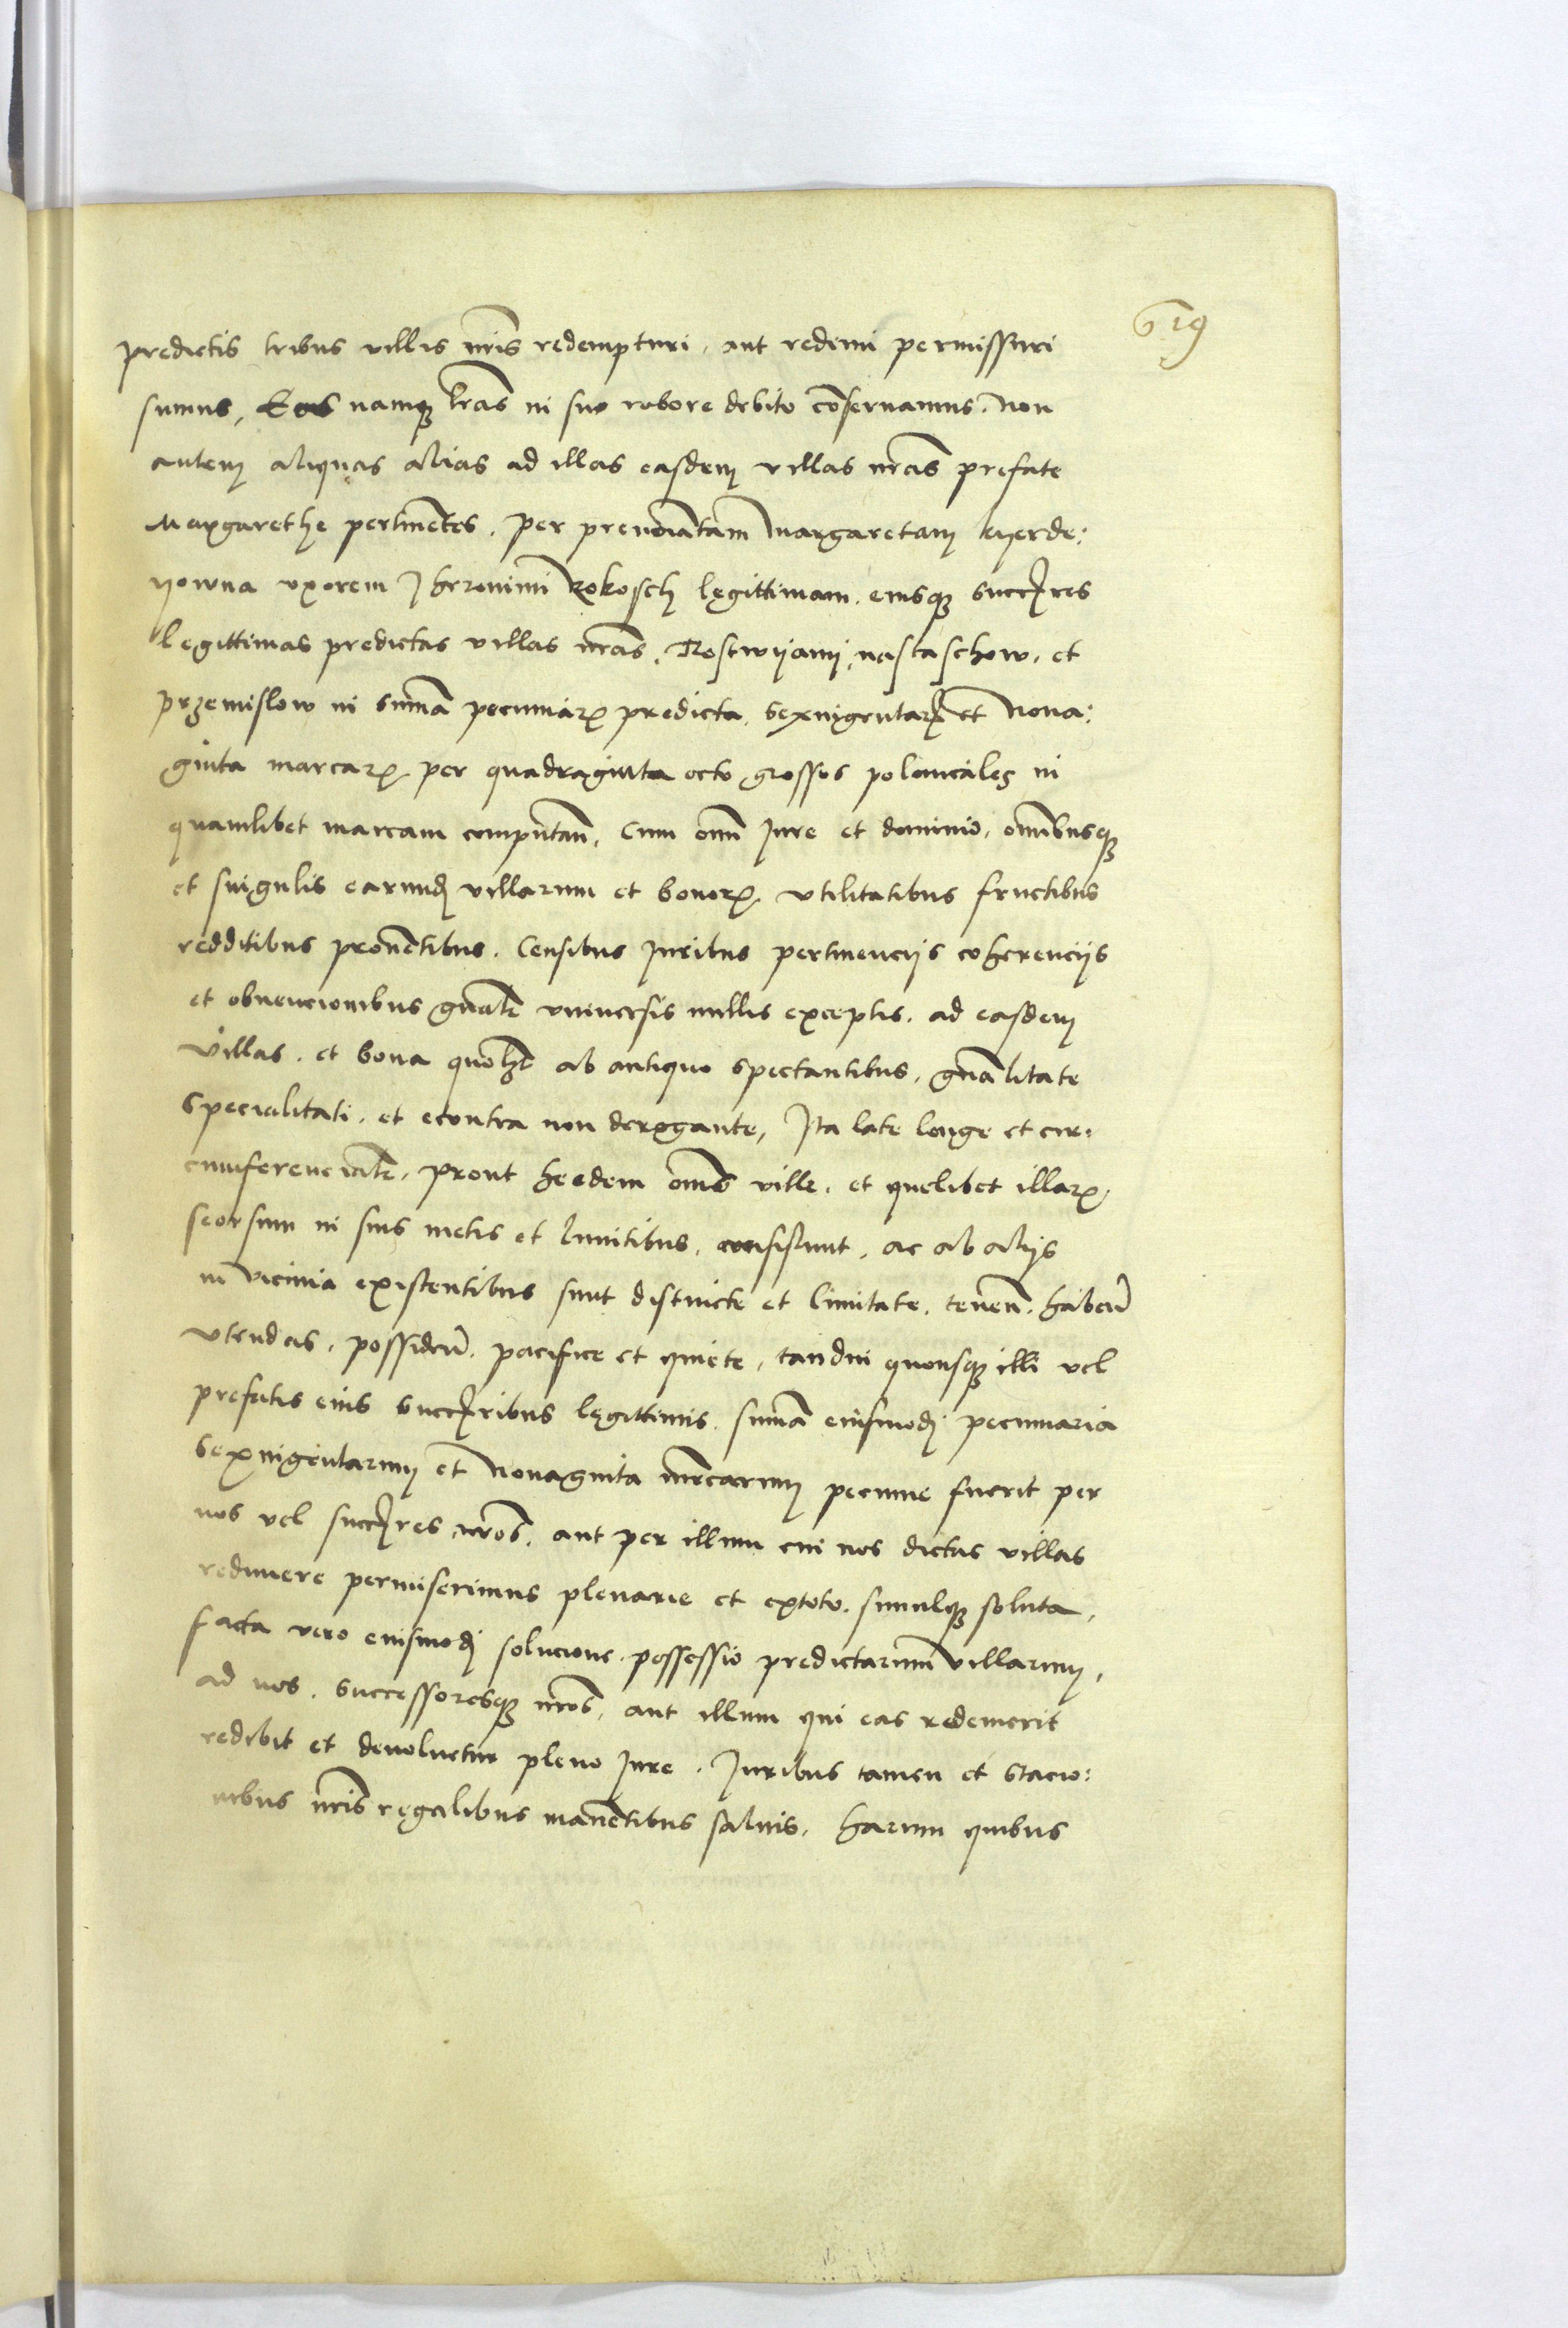 619
predictis tribus villis nr̃is redempturi, aut redimi permissuri
sumus, Eas namq̃ lr̃as in suo robore debito cõseruamus. Non
autem aliquas alias ad illas easdem villas nr̃as prefate
Margarethe pertinẽtes. per prenoĩatam Margaretam
nowna vxorem Iheronimi Rokosch legittimam. eiusq̃ succr̃es
legittimas predictas villas nr̃as. Rostwyanij, nastaschow, et
przemislow in sum̃a pecuniarꝝ predicta, sexingentarꝝ et Nona:
ginta marcarꝝ per quadraginta octo grossos polonicales in
quamlibet marcam computañ. Cum om̃i Iure et dominio, om̃ibusq̃
et singulis earundẽ villarum et bonorꝝ vtilitatibus fructibus
redditibus prouẽtibus. Censibus Iuribus pertinencijs coherencijs
et obuencionibus gñalr̃ vniuersis nullis exceptis. ad easdem
villas. et bona quol̃t ab antiquo spectantibus, gñalitate
specialitati. et econtra non derogante, Ita late longe et cir:
cumferencialr̃. prout heedem om̃es ville. et quelibet illarꝝ
seorsum in suis metis et limitibus, consistunt. ac ab alijs
in vicinia existentibus sunt distincte et limitate. teneñ. habeñ
vtendas. possideñ. pacifice et quiete, tandiu quousq̃ illi vel
prefatis eius succr̃ibus legittimis. sum̃a eiusmodi pecuniaria
sexingentarum et Nonaginta mr̃carum pecunie fuerit per
nos vel succr̃es nr̃os. aut per illum cui nos dictas villas
redimere permiserimus plenarie et extoto. simulq̃ soluta,
facta vero eiusmodi solucione. possessio predictarum villarum,
ad nos. successoresq̃ nr̃os, aut illum qui eas redemerit
redibit et deuoluetur pleno Iure. Iuribus tamen et stacio:
nibus nr̃is regalibus manẽtibus saluis. harum quibus